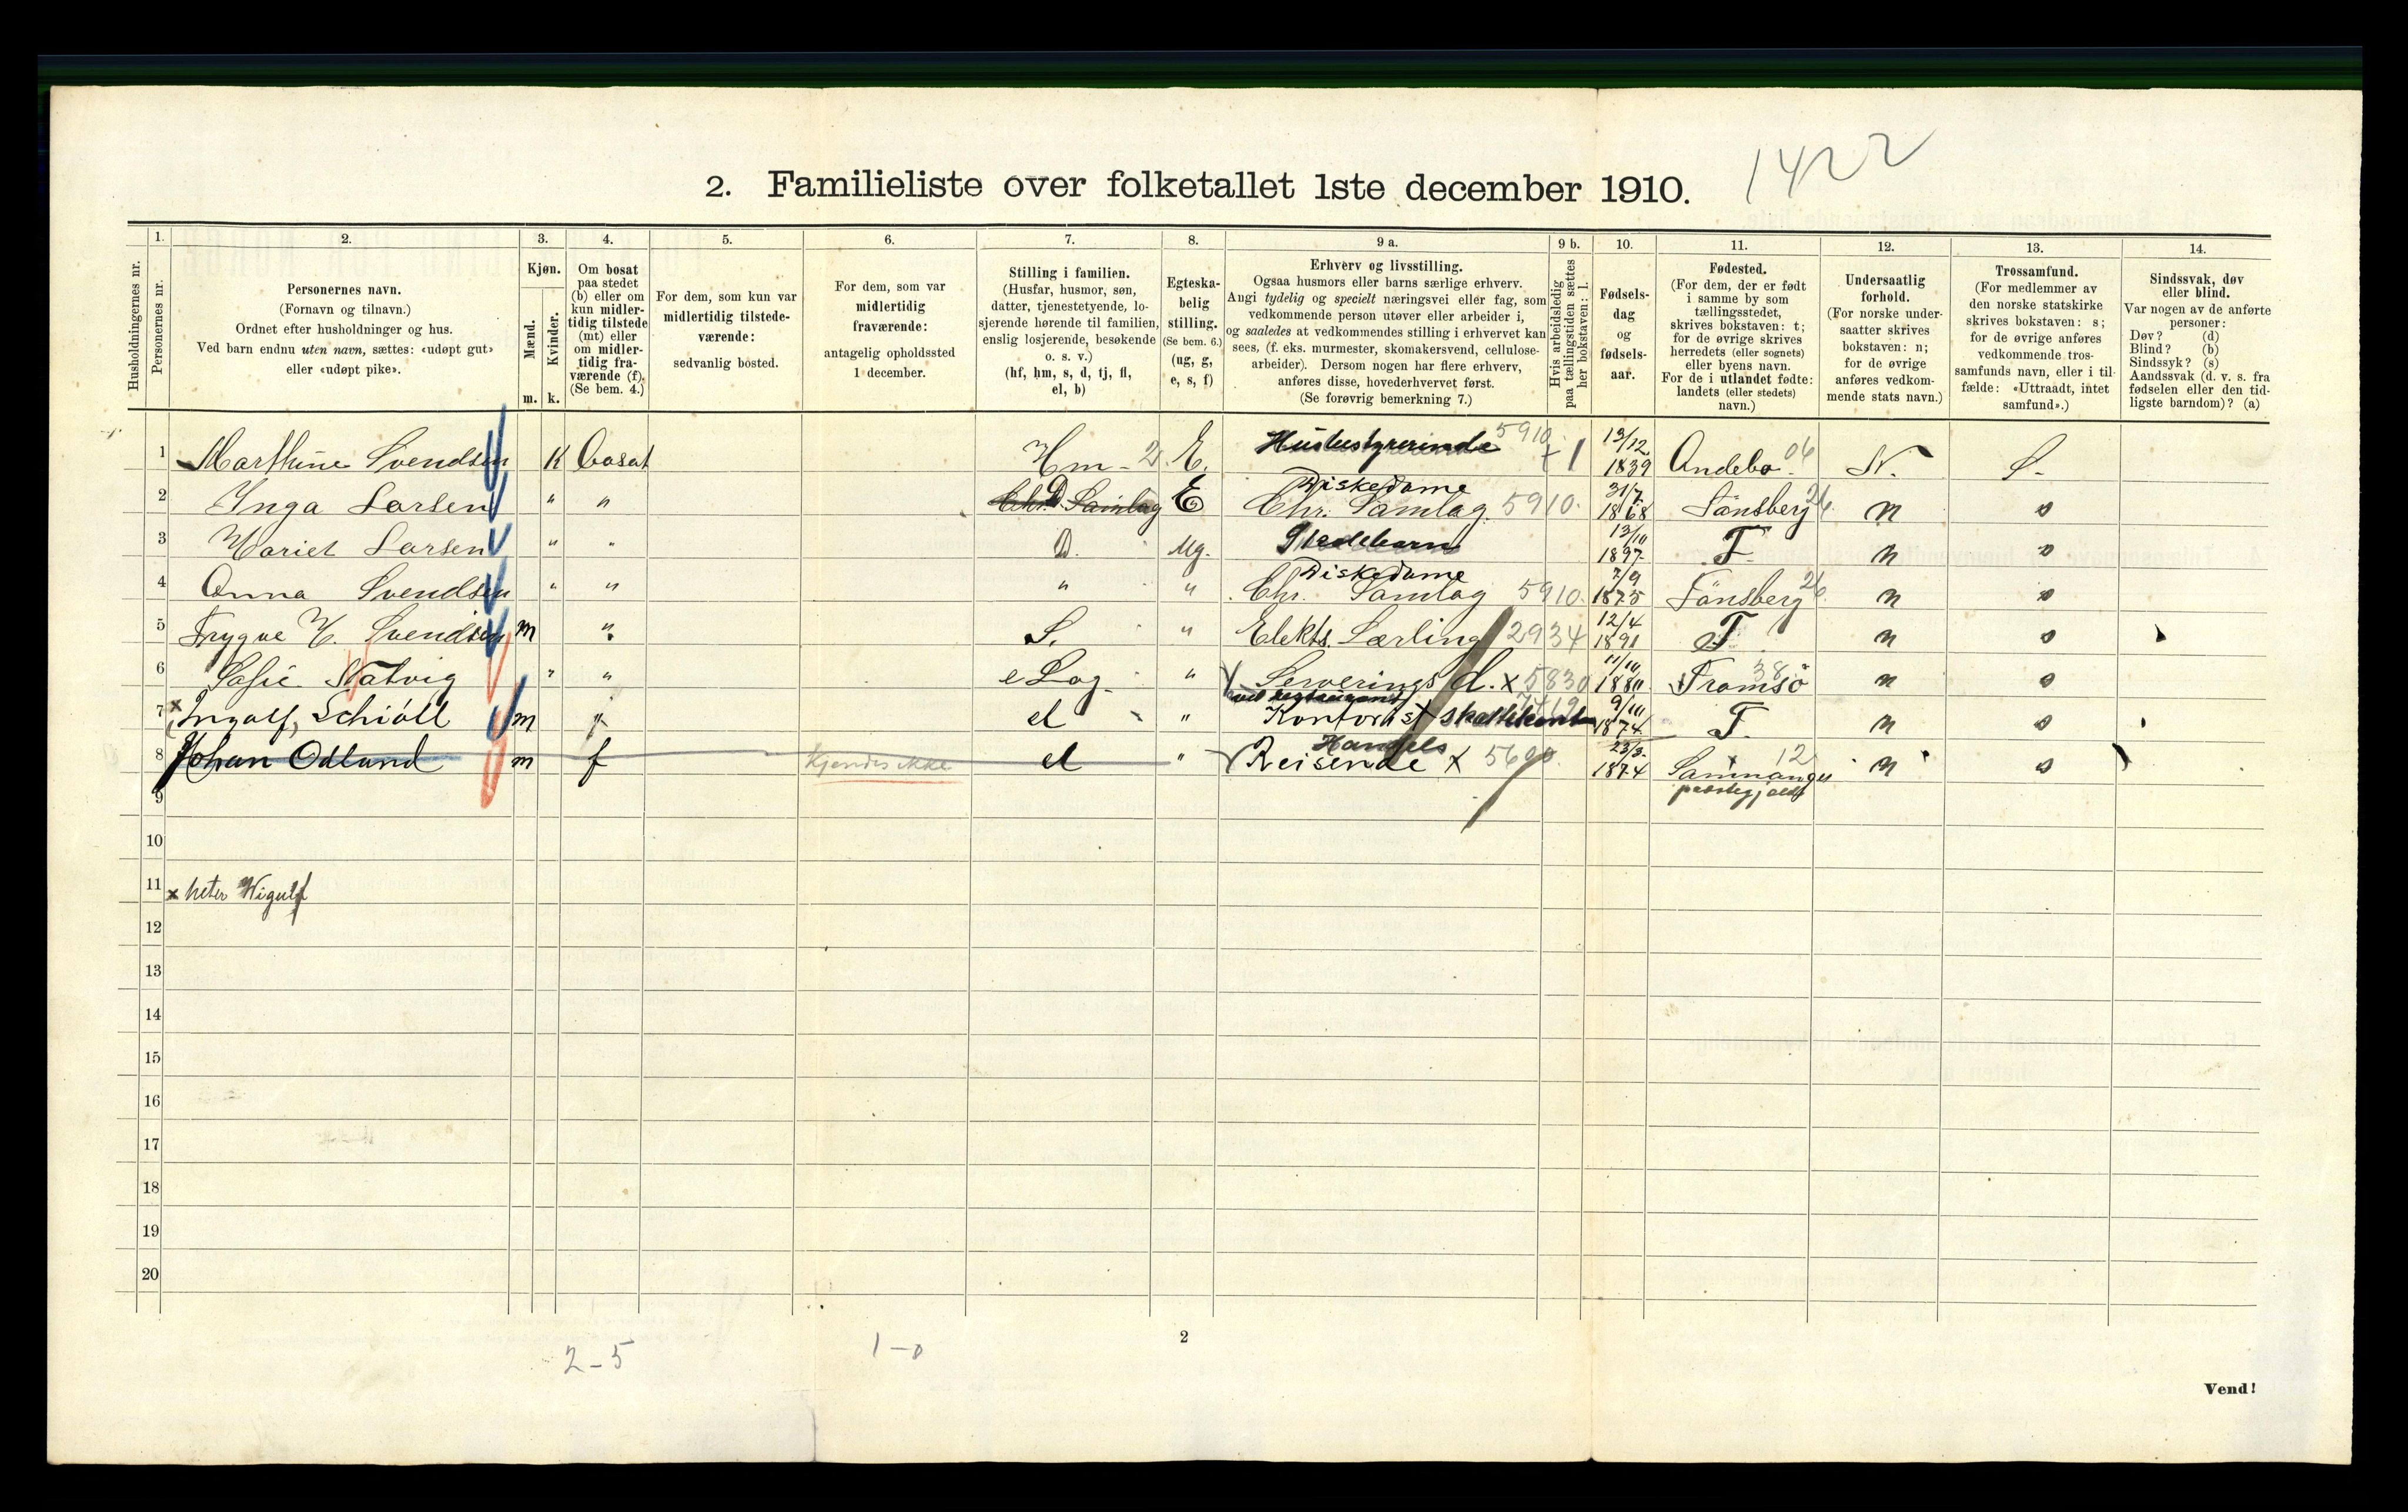 2. Familieliste over folketallet 1ste december 1910.
1422
1. 2. 3. 4. 5. 6. 7. 8. 9 a. 9 b. 10. 11. 12. 13. 14.
Husholdningernes nr.
Personernes nr.
Personernes navn.
(Fornavn og tilnavn.)
Ordnet efter husholdninger og hus.
Ved barn endnu uten navn, sættes: «udøpt gut»
eller «udøpt pike».
Kjøn.
Mænd.
Kvinder.
m. k.
Om bosat
paa stedet
(b) eller om
kun midler-
tidig tilstede
(mt) eller
om midler-
tidig fra-
værende (f).
(Se bem. 4.)
For dem, som kun var
midlertidig tilstede-
værende:
sedvanlig bosted.
For dem, som var
midlertidig
fraværende:
antagelig opholdssted
1 december.
Stilling i familien.
(Husfar, husmor, søn,
datter, tjenestetyende, lo-
sjerende hørende til familien,
enslig losjerende, besøkende
o. s. v.)
(hf, hm, s, d, tj, fl,
el, b)
Egteska-
belig
stilling.
(Se bem. 6.)
(ug, g,
e, s, f)
Erhverv og livsstilling.
Ogsaa husmors eller barns særlige erhverv.
Angi tydelig og specielt næringsvei eller fag, som
vedkommende person utøver eller arbeider i,
og saaledes at vedkommendes stilling i erhvervet kan
sees, (f. eks. murmester, skomakersvend, cellulose-
arbeider). Dersom nogen har flere erhverv,
anføres disse, hovederhvervet først.
(Se forøvrig bemerkning 7.)
Hvis arbeidsledig
paa tællingstiden sættes
her bokstaven: l.
Fødsels-
dag
og
fødsels-
aar.
Fødested.
(For dem, der er født
i samme by som
tællingsstedet,
skrives bokstaven: t;
for de øvrige skrives
herredets (eller sognets)
eller byens navn.
For de i utlandet fødte:
landets (eller stedets)
navn.)
Undersaatlig
forhold.
(For norske under-
saatter skrives
bokstaven: n;
for de øvrige
anføres vedkom-
mende stats navn.)
Trossamfund.
(For medlemmer av
den norske statskirke
skrives bokstaven: s;
for de øvrige anføres
vedkommende tros-
samfunds navn, eller i til-
fælde: «Uttraadt, intet
samfund».)
Sindssvak, døv
eller blind.
Var nogen av de anførte
personer:
Døv? (d)
Blind? (b)
Sindssyk? (s)
Aandssvak (d. v. s. fra
fødselen eller den tid-
ligste barndom)? (a)
1 Marthine Svendsen K bosat Hm - 2 E. Husbestyrerinde 5910 + 1 13/12 1839 Andebo 06 N. S.
2 Inga Larsen " " Chr. Samlag D E Diskedame Chr. Samlag 5910. 31/7 1868 Tönsberg 26 n s
3 Hariet Larsen " " D. Ug. Skolebarn 13/10 1897 T n s
4 Anna Svendsen " " " " Diskedame Chr. Samlag 5910. 7/9 1875 Tönsberg 26 n s
5 Trygve H. Svendsen m " S. " Elektr. Lærling 2934 12/4 1891 T n s
6 Sofie Natvig " " e Log. " Serverings d. x 5830 11/10 1880 Tromsö 38 n s
ved restaurant
7 x Ingolf, Schiöll m " el " Kontorist skattekont 9/10 1874 T. n s
8 Johan Odlund m f Kjendes ikke el " Handels Reisende x 5690 23/3 1874 Samnanger 12 n s
præstegjæld
9
10
11 x heter Wigulf
12
13
14
15
16
17
18
19
20
2-5 1-0
2
Vend!